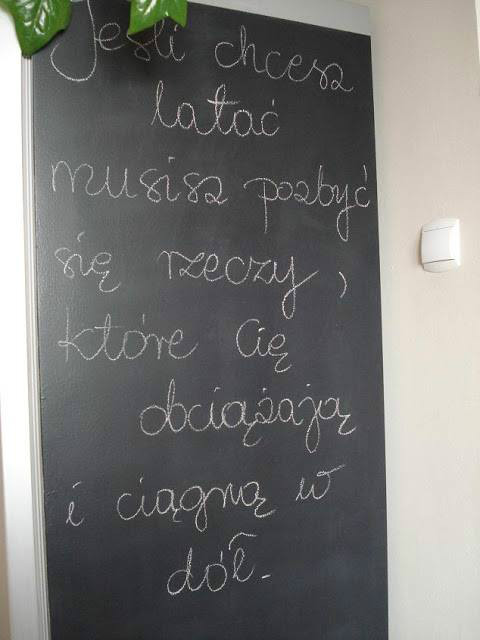 Jeśli chcesz
latać
musisz pozbyć
się rzeczy,
które Cię
obciążają
i ciągną w
dół.